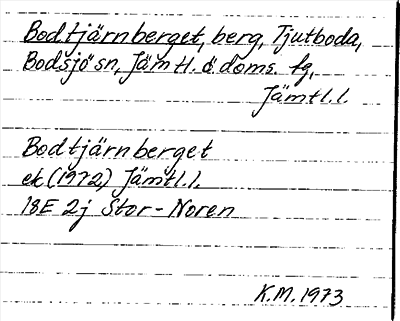 Bodtjärnberget, berg, Tjutboda,
Bodsjö sn, Jämtl. ö. doms. fg,
Jämtl. l.
Bodtjärnberget
ek (1972) Jämtl. l.
18E 2j Stor-Noren
K.M. 1973